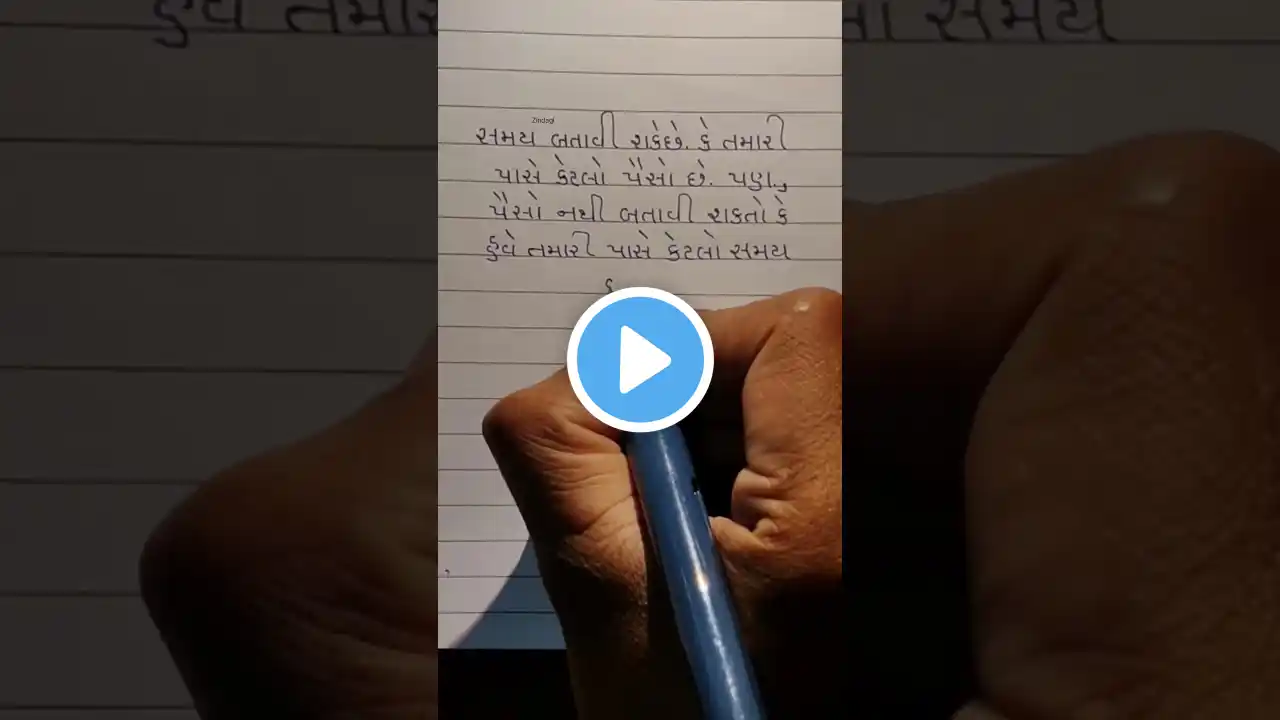 Zindagi
સમય બતાવી શકેછે. કે તમારી
પાસે કેટલો પૈસો છે. પણ.
પૈસો નથી બતાવી શકતો કે
હવે તમારી પાસે કેટલો સમય